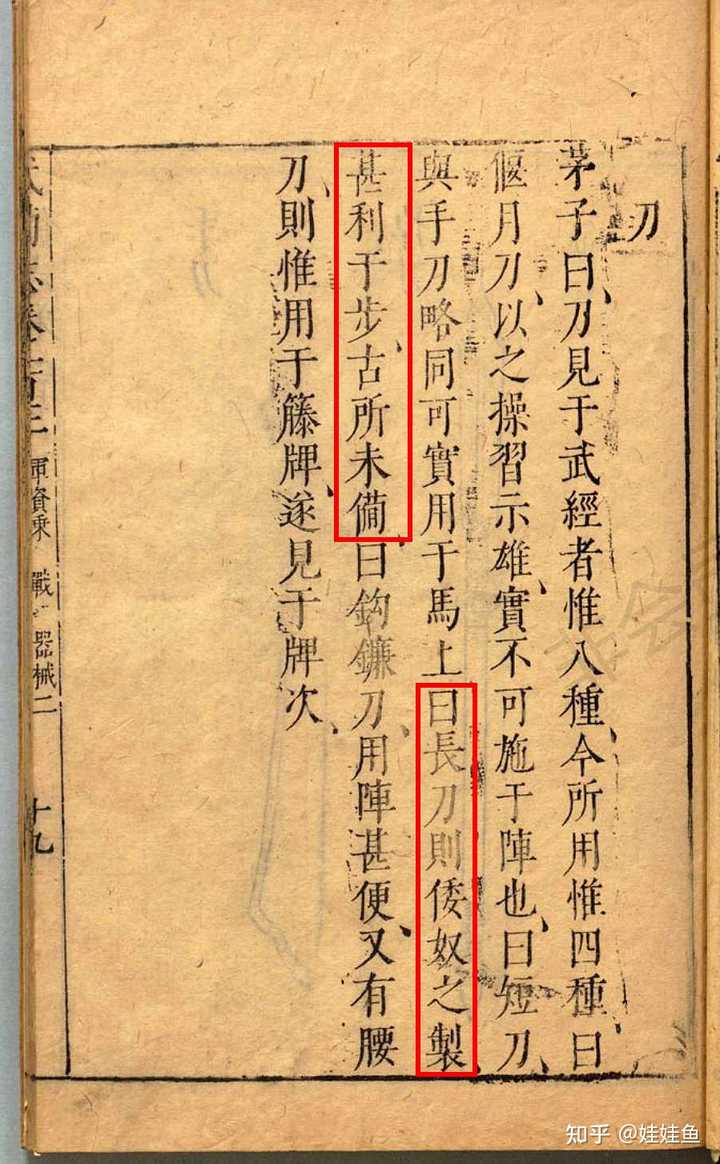 刀
茅子曰刀見于武經者惟八種、今所用惟四種曰
偃月刀、以之操習示雄、實不可施于陣也、曰短刀、
與手刀略同可實用于馬上曰長刀則倭奴之製、
甚利于步、古所未備、曰鈎鐮刀、用陣甚便、又有腰
刀則惟用于籐牌、遂見于牌次、
軍資乘 戰 器械二
十九
知乎 @娃娃鱼